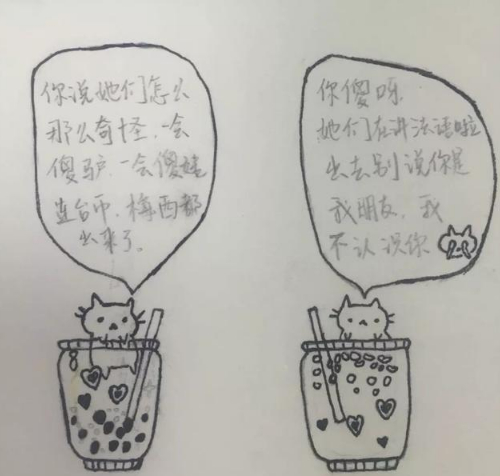 你说她们怎么
那么奇怪,一会
傻驴,一会傻娃
连台币,梅西都
出来了。
你傻呀
她们在讲法语啦
出去别说你是
我朋友,我
不认识你